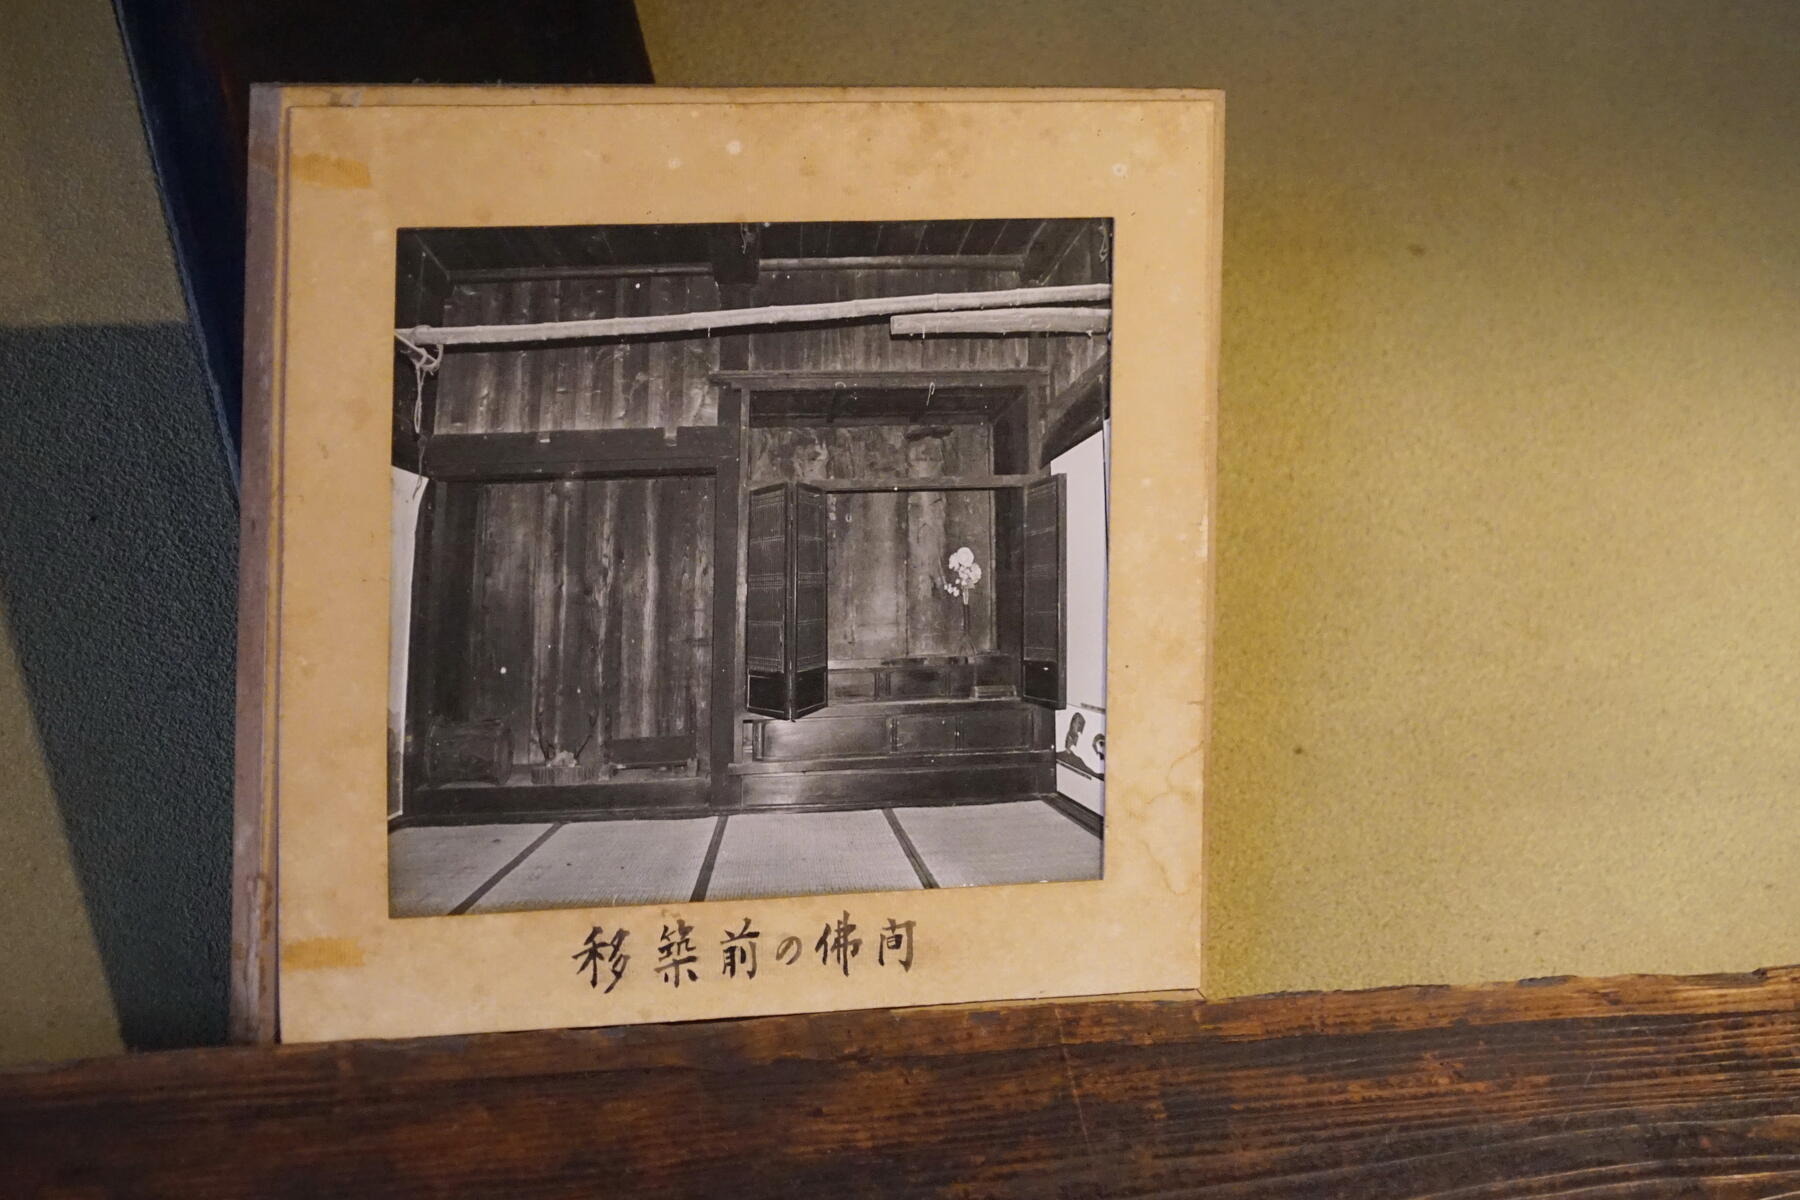 移築前の佛間